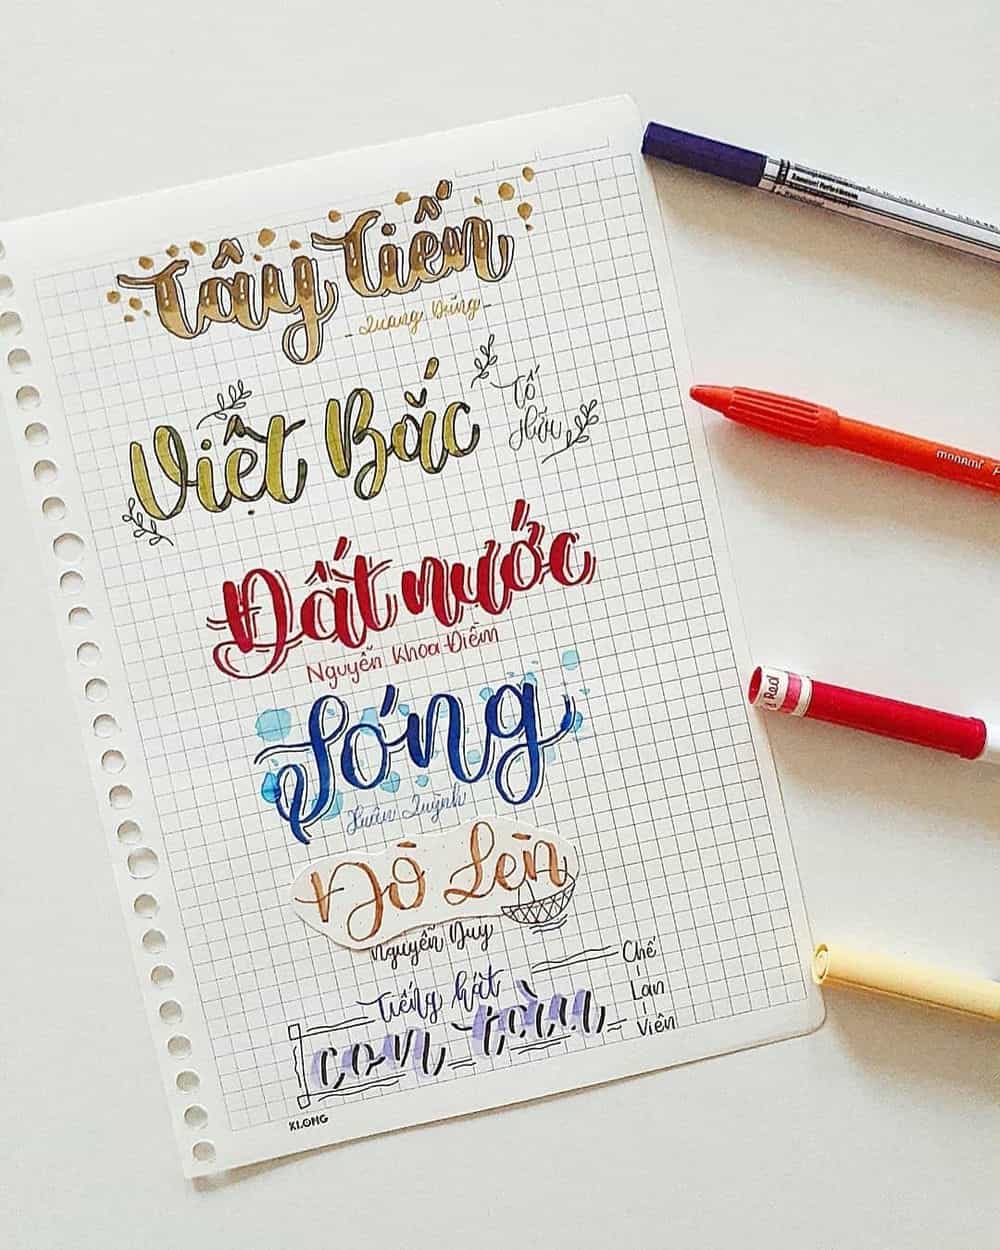 Tây Tiến
- Quang Dũng -
Việt Bắc
Tố
Hữu
Đất nước
Nguyễn Khoa Điềm
Sóng
Xuân Quỳnh
Đò Lèn
Nguyễn Duy
Tiếng hát
con tàu
Chế
Lan
Viên
KLONG
monami
Red